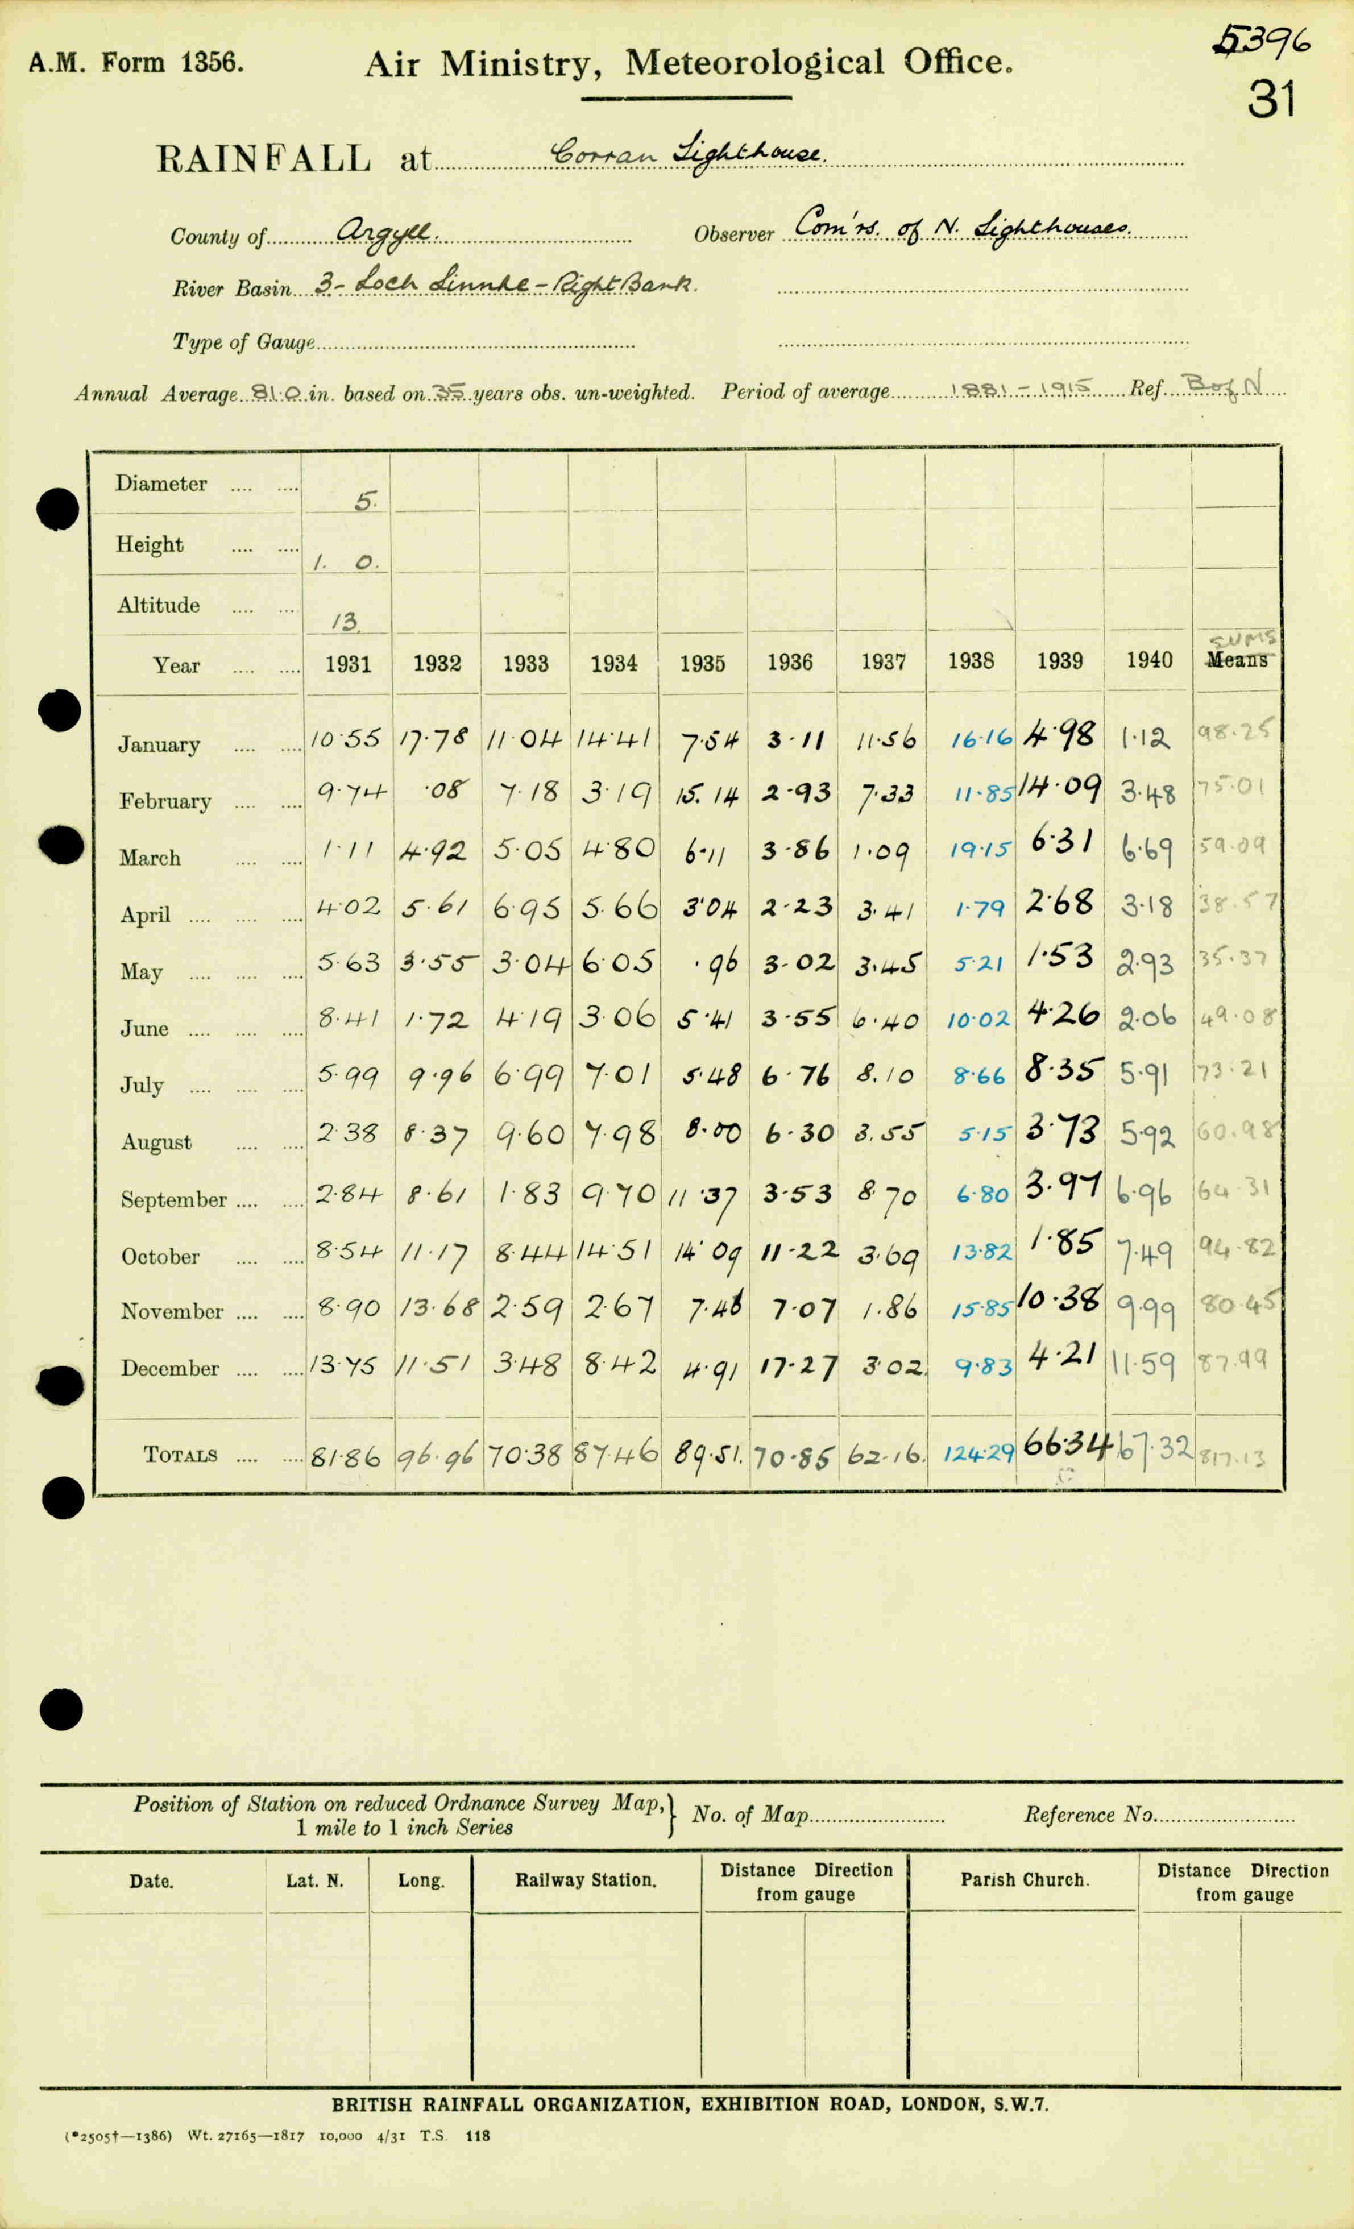 5396
A.M. Form 1356. Air Ministry, Meteorological Office.
31
RAINFALL at Corran Lighthouse.
County of Argyll. Observer Com'rs. of N. Lighthouses.
River Basin 3- Loch Linnhe - Right Bank.
Type of Gauge
Annual Average 81.0 in. based on 35 years obs. un-weighted. Period of average 1881-1915 Ref. B of N
Diameter 5.
Height 1. 0.
Altitude 13.
SUMS
Year 1931 1932 1933 1934 1935 1936 1937 1938 1939 1940 Means
January 10.55 17.78 11.04 14.41 7.54 3.11 11.56 16.16 4.98 1.12 98.25
February 9.74 .08 7.18 3.19 15.14 2.93 7.33 11.85 14.09 3.48 75.01
March 1.11 4.92 5.05 4.80 6.11 3.86 1.09 19.15 6.31 6.69 59.09
April 4.02 5.61 6.95 5.66 3.04 2.23 3.41 1.79 2.68 3.18 38.57
May 5.63 3.55 3.04 6.05 .96 3.02 3.45 5.21 1.53 2.93 35.37
June 8.41 1.72 4.19 3.06 5.41 3.55 6.40 10.02 4.26 2.06 49.08
July 5.99 9.96 6.99 7.01 5.48 6.76 8.10 8.66 8.35 5.91 73.21
August 2.38 8.37 9.60 7.98 8.00 6.30 3.55 5.15 3.73 5.92 60.98
September 2.84 8.61 1.83 9.70 11.37 3.53 8.70 6.80 3.97 6.96 64.31
October 8.54 11.17 8.44 14.51 14.09 11.22 3.69 13.82 1.85 7.49 94.82
November 8.90 13.68 2.59 2.67 7.46 7.07 1.86 15.85 10.38 9.99 80.45
December 13.75 11.51 3.48 8.42 4.91 17.27 3.02 9.83 4.21 11.59 87.99
TOTALS 81.86 96.96 70.38 87.46 89.51. 70.85 62.16. 124.29 66.34 67.32 817.13
C
Position of Station on reduced Ordnance Survey Map, No. of Map Reference No.
1 mile to 1 inch Series
Date. Lat. N. Long. Railway Station. Distance Direction Parish Church. Distance Direction
from gauge from gauge
BRITISH RAINFALL ORGANIZATION, EXHIBITION ROAD, LONDON, S.W.7.
(*2505†—1386) Wt. 27165—1817 10,000 4/31 T.S. 118